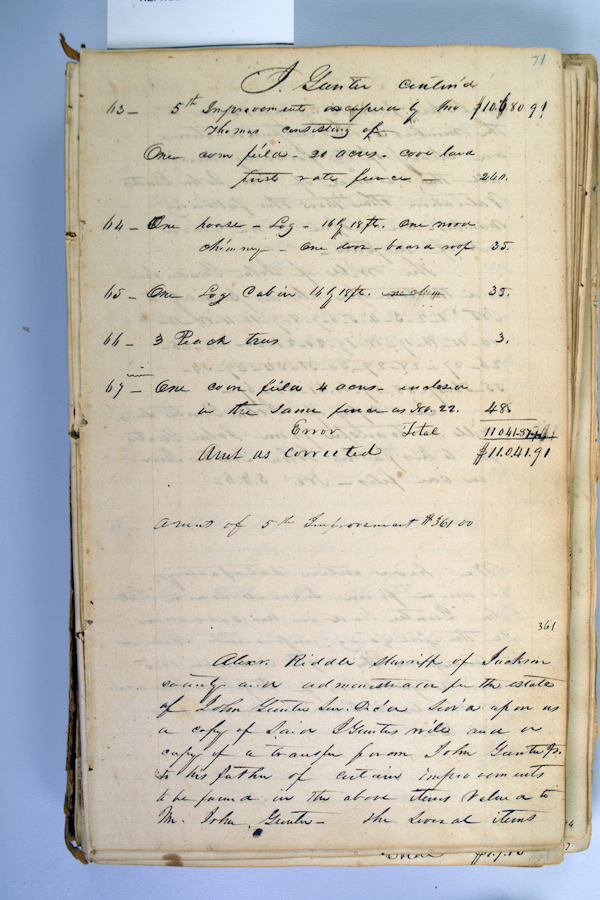 71
J. Gunter contind
63 — 5th Improvement occupied by his $10.680.91
Thomas consisting of
One corn field — 20 acres. cove land
first rate fence — 240.
64 — One house — Log — 16 by 18 ft. One wood
chimney — One door — board roof 35.
65 — One Log Cabin 16 by 18 ft. 35.
66 — 3 Peach trees 3.
67 — One corn field 4 acres — inclosed
in the same fence as No. 22. 48.
Error Total 11041.
Amt as corrected $11.041.91
Amnt of 5th Improvement $361 00
361
Alexr. Riddle Sherriff of Jackson
county and administrator for the estate
of John Gunter Senr. Dec'd serv'd upon us
a copy of said J Gunters will and a
copy of a transfer from John Gunter Jr.
to his father of certain improvements
to be found in the above items valued to
Mr. John Gunter — the several items